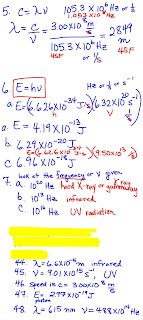 5. c = λν 105.3 × 10⁶ Hz or 1/s
1.053 × 10⁸
λ = c/ν = 3.00×10⁸ m/s = 2.849 m
105.3 × 10⁶ Hz or 1/s
4SF 4SF
6. E = hν Hz or 1/s or s⁻¹
a. E = (6.626×10⁻³⁴ J·s)(6.32×10²⁰ 1/s)
a. E = 4.19×10⁻¹³ J
b. 6.29×10⁻²⁰ J
E = (6.626×10⁻³⁴ J·s)(9.50×10¹³ 1/s)
c. 6.96×10⁻¹⁸ J
look at the frequency or ν given
7. a. 10²⁰ Hz hard X-ray or gamma ray
b. 10¹³ Hz infrared
c. 10¹⁶ Hz UV radiation
44. λ = 6.6×10⁻⁶ m infrared
45. ν = 9.01×10¹⁵ s⁻¹, UV
46. speed is c = 3.00×10⁸ m/s
47. E photon = 2.99×10⁻¹⁹ J
48. λ = 615 nm ν = 4.88×10¹⁴ Hz